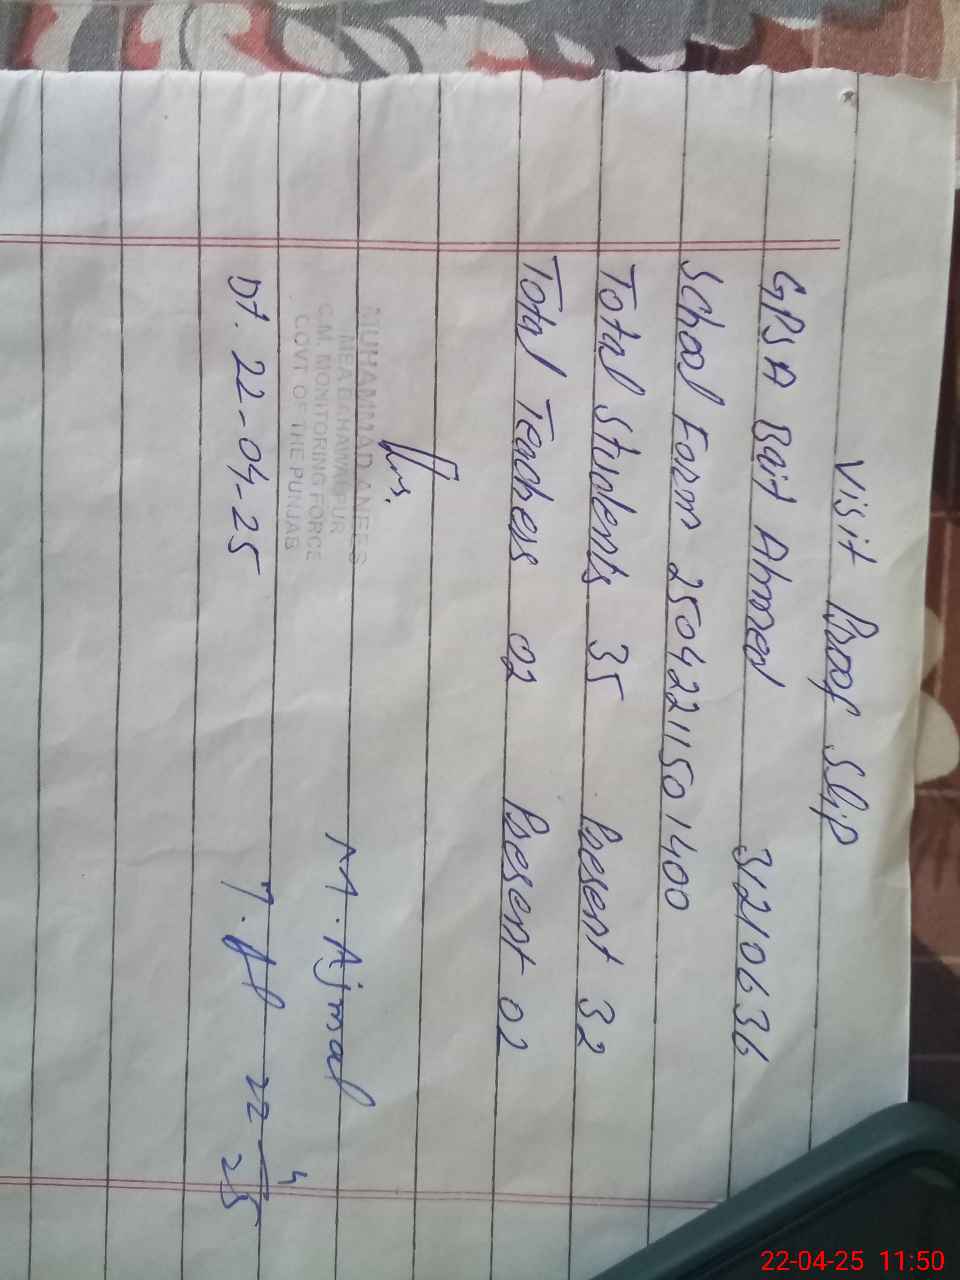 Visit Proof Slip
GPS A Bait Ahmed 31210636
School Form 25042211501400
Total Students 35 Present 32
Total Teachers 02 Present 02
MUHAMMAD ANEES
MEA BAHAWALPUR
C.M. MONITORING FORCE
GOVT OF THE PUNJAB
Dt. 22-04-25
M. Ajmal
22-4-25
22-04-25 11:50